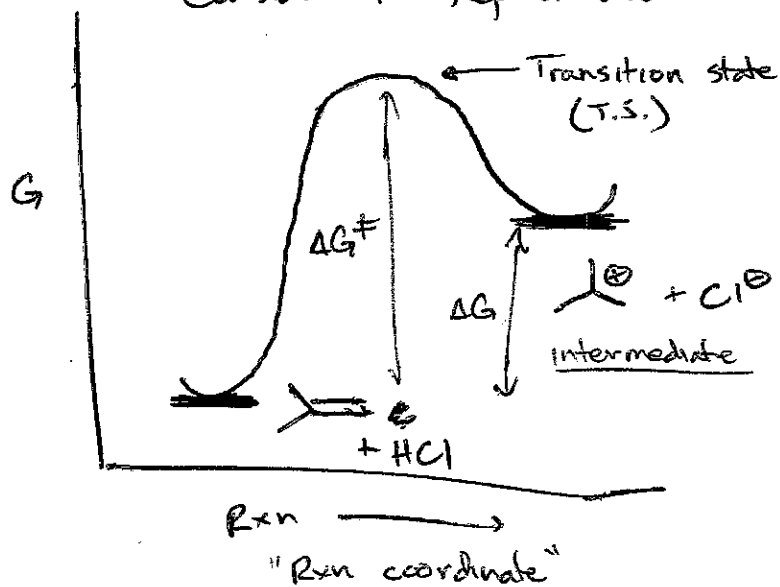 Transition state
(T.S.)
G
ΔG‡
ΔG
⊕ + Cl⊖
intermediate
+ HCl
Rxn
"Rxn coordinate"